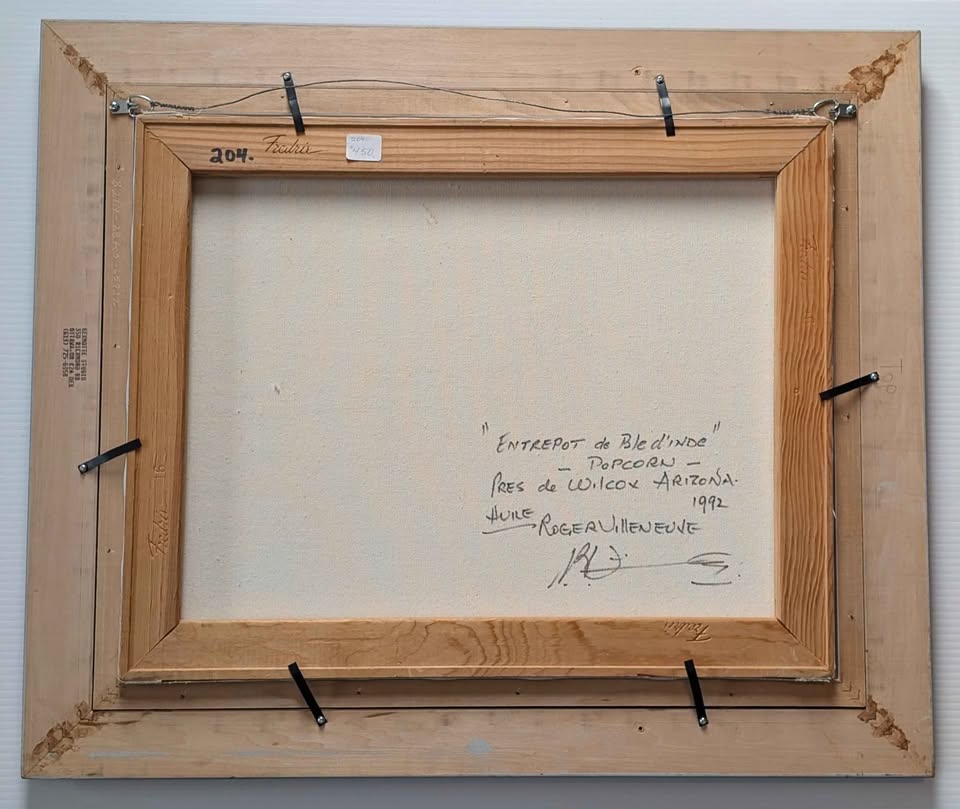 204. Fredrix
204.
$450.
" ENTREPOT de Ble d'INDE "
— POPCORN —
PRES de WILCOX ARIZONA.
1992
HUILE
ROGER VILLENEUVE
Fredrix
Fredrix 16
Fredrix
TOP
350 RICHMOND RD